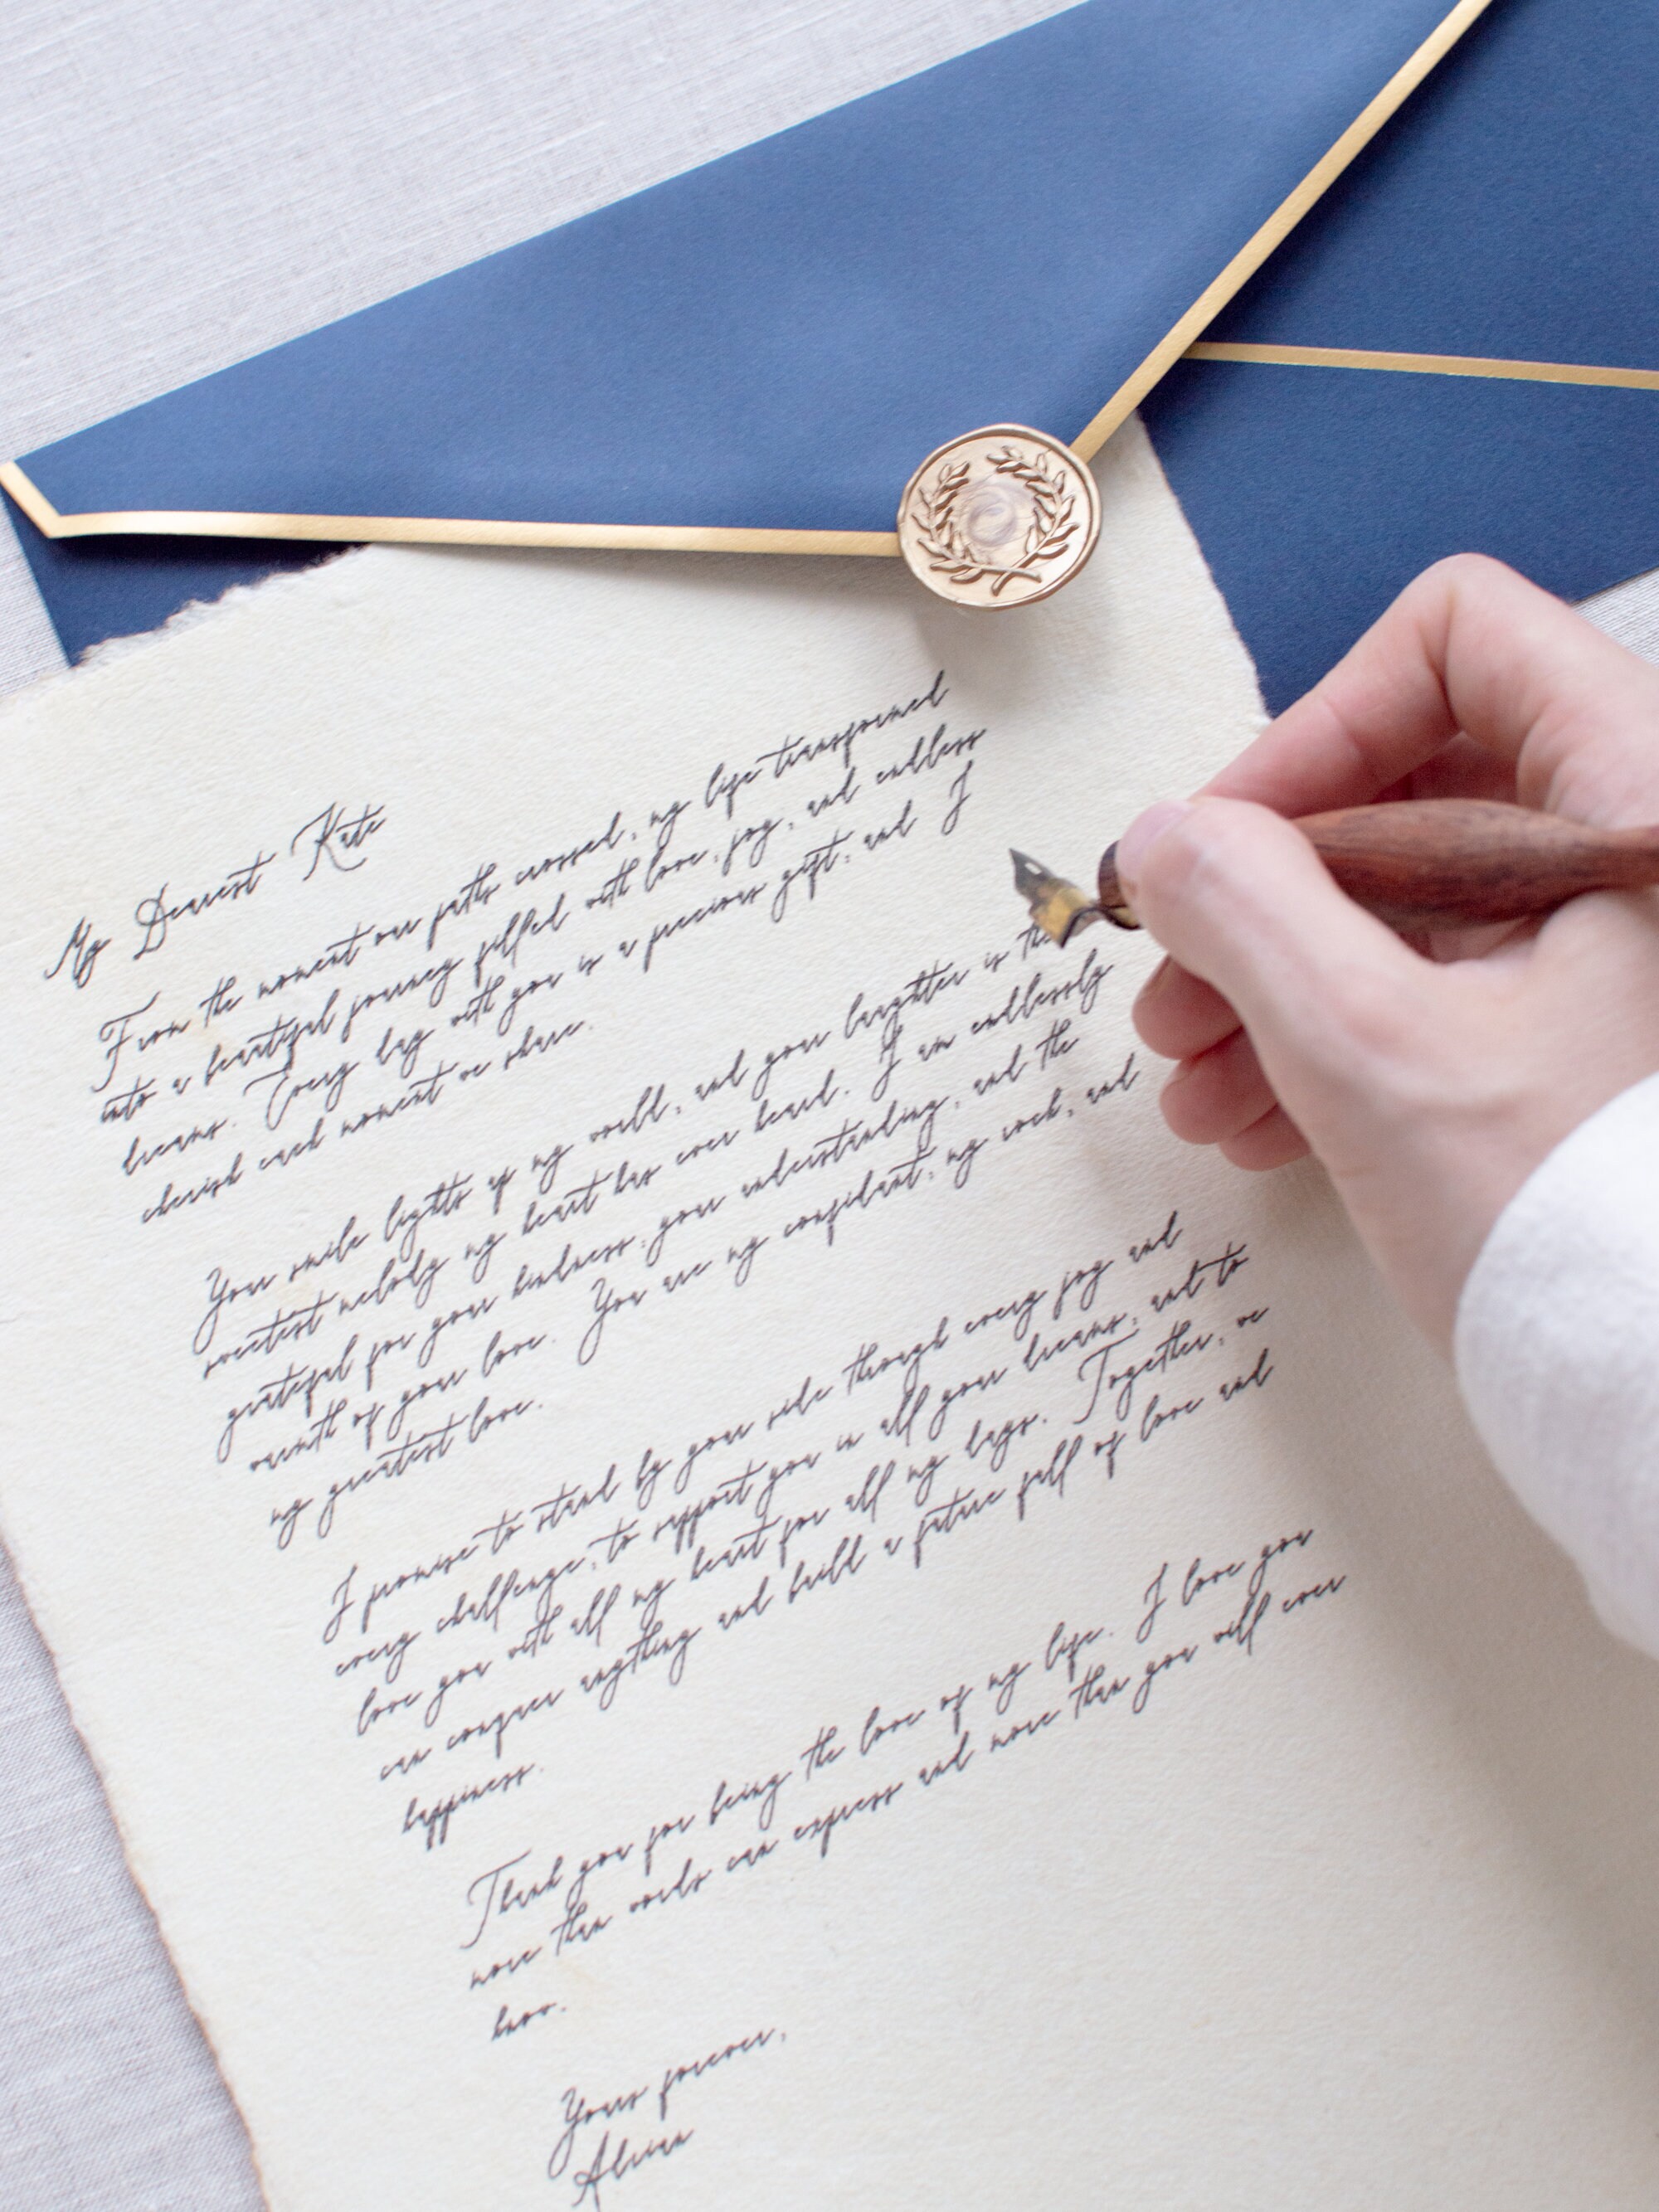 My Dearest Kate
From the moment our paths crossed, my life transformed
into a beautiful journey filled with love, joy, and endless
dreams. Every day with you is a precious gift, and I
cherish each moment we share.
Your smile lights up my world, and your laughter is the
sweetest melody my heart has ever heard. I am endlessly
grateful for your kindness, your understanding, and the
warmth of your love. You are my confidant, my rock, and
my greatest love.
I promise to stand by your side through every joy and
every challenge, to support you in all your dreams, and to
love you with all my heart for all my days. Together, we
can conquer anything and build a future full of love and
happiness.
Thank you for being the love of my life. I love you
more than words can express and more than you will ever
know.
Yours forever,